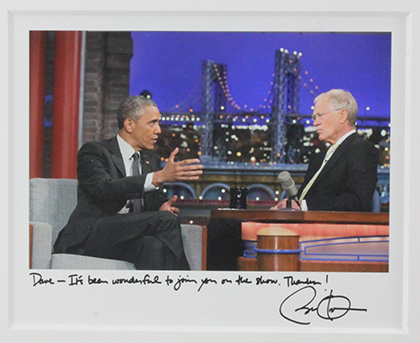 Dave — It's been wonderful to join you on the show. Thanks!